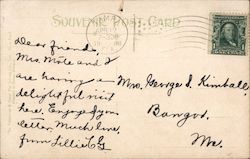 SOUVENIR POST-CARD
Dear friends,
Mrs. Mote and I
are having a
delightful visit
here. Enjoyed your
letter. Much love,
from Lillie
Mrs. George S. Kimball,
Bangor,
Me.